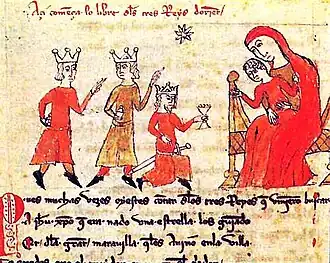 Açi comença lo libre dels tres Reys dorient
Pues muchas vezes oyestes contar delos tres Reyes q̃ vinieron buscar
A ihũ xp̃o q̃ era nado una estrella los guiando
Et dela grãt marauilla q̃ les auino enla villa